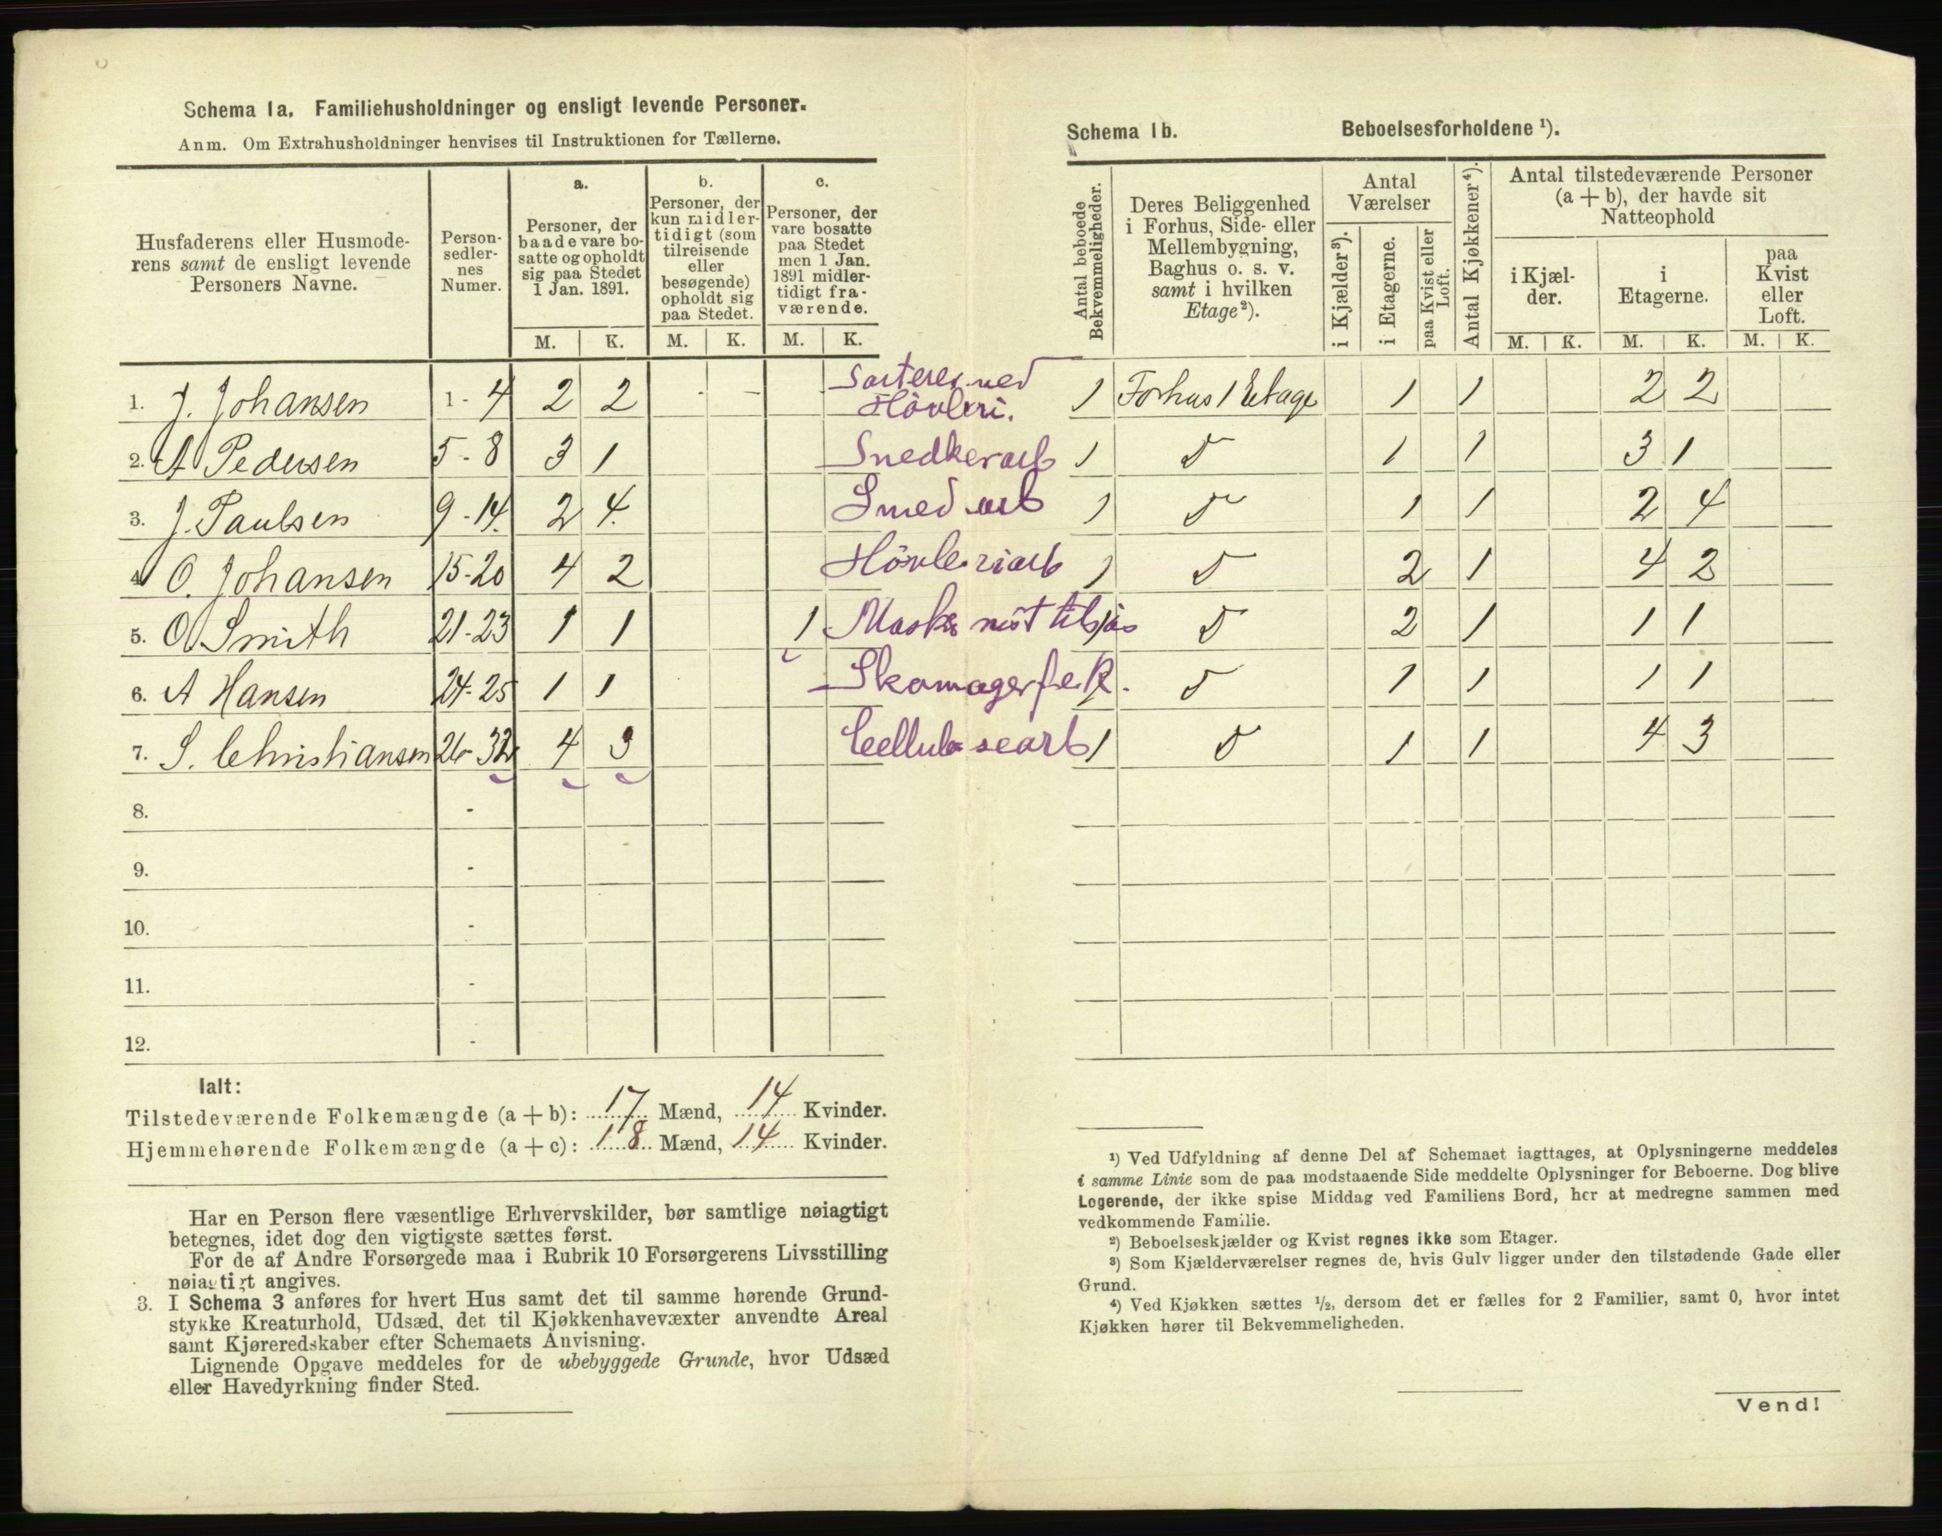 Schema 1a. Familiehusholdninger og ensligt levende Personer.
Anm. Om Extrahusholdninger henvises til Instruktionen for Tællerne.
Husfaderens eller Husmode-
rens samt de ensligt levende
Personers Navne.
Person-
sedler-
nes
Numer.
a.
Personer, der
baade vare bo-
satte og opholdt
sig paa Stedet
1 Jan. 1891.
b.
Personer, der
kun midler-
tidigt (som
tilreisende
eller
besøgende)
opholdt sig
paa Stedet.
c.
Personer, der
vare bosatte
paa Stedet
men 1 Jan.
1891 midler-
tidigt fra-
værende.
M. K. M. K. M. K.
1. J. Johansen 1 - 4 2 2 - - Sorterer ved
Høvleri.
2. A Pedersen 5 - 8 3 1 Snedkerarb
3. J. Paulsen 9 - 14. 2 4. Smed arb
4 O. Johansen 15-20 4 2 Høvleriarb
5. O Smith 21-23 1 1 1 Maskinist tilsjøs
6. A Hansen 24-25 1 1 Skomagerfabk.
7. S. Christiansen 26-32 4 3 Cellulosearb
8. -
9. -
10. -
11. -
12. -
Ialt:
Tilstedeværende Folkemængde (a + b): 17 Mænd, 14 Kvinder.
Hjemmehørende Folkemængde (a + c): 18 Mænd, 14 Kvinder.
Har en Person flere væsentlige Erhvervskilder, bør samtlige nøiagtigt
betegnes, idet dog den vigtigste sættes først.
For de af Andre Forsørgede maa i Rubrik 10 Forsørgerens Livsstilling
nøiagtigt angives.
3. I Schema 3 anføres for hvert Hus samt det til samme hørende Grund-
stykke Kreaturhold, Udsæd, det til Kjøkkenhavevæxter anvendte Areal
samt Kjøreredskaber efter Schemaets Anvisning.
Lignende Opgave meddeles for de ubebyggede Grunde, hvor Udsæd
eller Havedyrkning finder Sted.
Schema 1b. Beboelsesforholdene ¹).
Antal beboede
Bekvemmeligheder.
Deres Beliggenhed
i Forhus, Side- eller
Mellembygning,
Baghus o. s. v.
samt i hvilken
Etage ²).
Antal
Værelser
i Kjælder ³).
i Etagerne.
paa Kvist eller
Loft.
Antal Kjøkkener ⁴).
Antal tilstedeværende Personer
(a + b), der havde sit
Natteophold
i Kjæl-
der.
i
Etagerne.
paa
Kvist
eller
Loft.
M. K. M. K. M. K.
1 Forhus 1 Etage 1 1 2 2
1 D 1 1 3 1
1 D 1 1 2 4
1 D 2 1 4 2
1 D 2 1 1 1
1 D 1 1 1 1
1 D 1 1 4 3
¹) Ved Udfyldning af denne Del af Schemaet iagttages, at Oplysningerne meddeles
i samme Linie som de paa modstaaende Side meddelte Oplysninger for Beboerne. Dog blive
Logerende, der ikke spise Middag ved Familiens Bord, her at medregne sammen med
vedkommende Familie.
²) Beboelseskjælder og Kvist regnes ikke som Etager.
³) Som Kjælderværelser regnes de, hvis Gulv ligger under den tilstødende Gade eller
Grund.
⁴) Ved Kjøkken sættes ½, dersom det er fælles for 2 Familier, samt 0, hvor intet
Kjøkken hører til Bekvemmeligheden.
Vend!